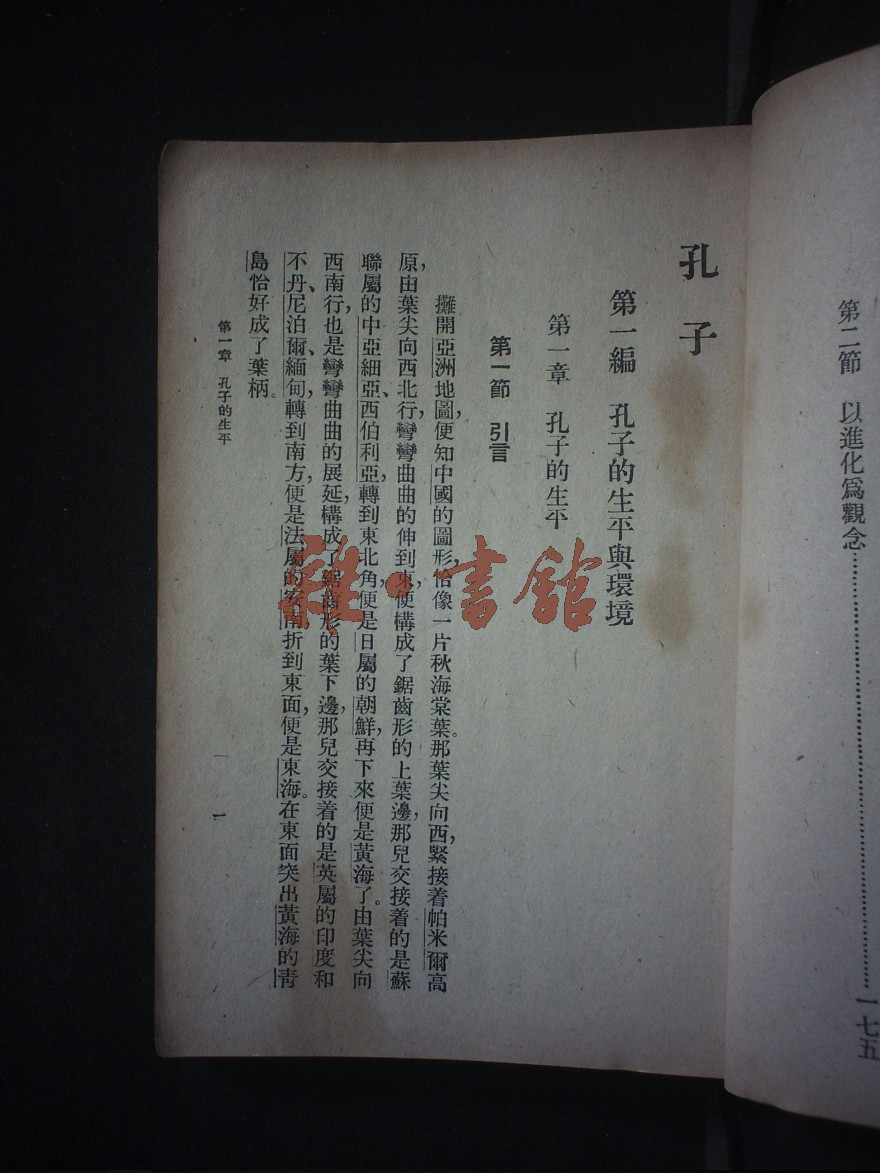 第二節　以進化爲觀念……………………………一七五
孔子
第一編　孔子的生平與環境
第一章　孔子的生平
第一節　引言
攤開亞洲地圖，便知中國的圖形，恰像一片秋海棠葉。那葉尖向西，緊接着帕米爾高
原，由葉尖向西北行，彎彎曲曲的伸到東，便構成了鋸齒形的上葉邊，那兒交接着的是蘇
聯屬的中亞細亞、西伯利亞，轉到東北角，便是日屬的朝鮮，再下來便是黃海了。由葉尖向
西南行，也是彎彎曲曲的展延，構成了鋸齒形的葉下邊，那兒交接着的是英屬的印度和
不丹、尼泊爾、緬甸，轉到南方，便是法屬的安南，折到東面，便是東海。在東面突出黃海的青
島恰好成了葉柄。
第一章　孔子的生平
一
雜·書館